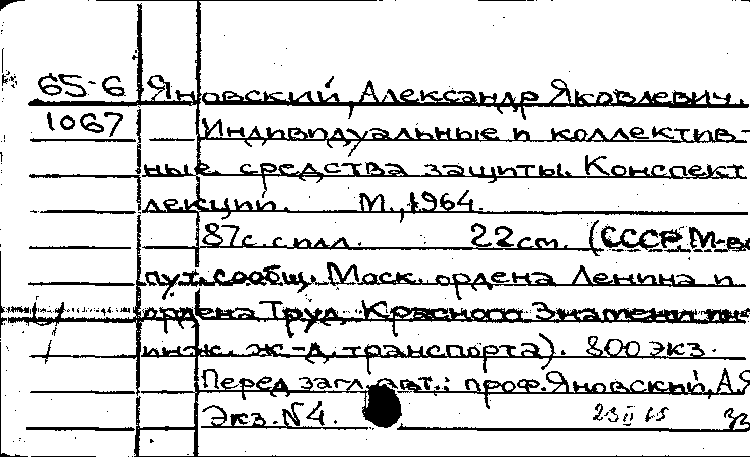 65-6 Яновский, Александр Яковлевич.
1067 Индивидуальные и коллектив-
ные средства защиты. Конспект
лекций. М., 1964.
87с. с илл. 22 см. (СССР. М-во
пут. сообщ. Моск. ордена Ленина и
ордена Труд. Красного Знамени ин-
инж. ж-д. транспорта). 800 экз.
Перед загл. авт.: проф. Яновский, А.Я
Экз. №4. 23 II 65